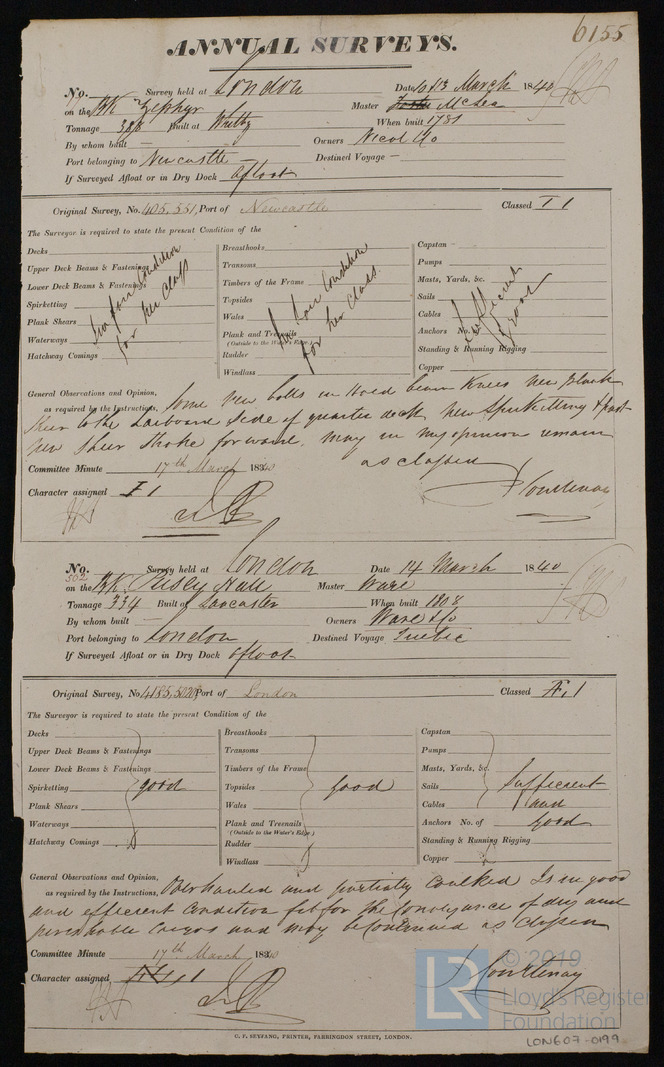 6155
ANNUAL SURVEYS.
No. Survey held at London Date 13 March 1840
on the Bk Zephyr Master McLea
Tonnage 300 Built at Whitby When built 1781
By whom built — Owners Nicol & Co
Port belonging to Newcastle — Destined Voyage —
If Surveyed Afloat or in Dry Dock afloat
Original Survey, No. 405,551, Port of Newcastle Classed I 1
The Surveyor is required to state the present Condition of the
Decks
Upper Deck Beams & Fastenings
Lower Deck Beams & Fastenings
Spirketting
Plank Shears
Waterways
Hatchway Comings
In fair Condition
for her Class
Breasthooks
Transoms
Timbers of the Frame
Topsides
Wales
Plank and Treenails
(Outside to the Water's Edge.)
Rudder
Windlass
In fair Condition
for her Class.
Capstan
Pumps
Masts, Yards, &c.
Sails
Cables
Anchors No.
Standing & Running Rigging
Copper
Sufficient
& good
General Observations and Opinion,
as required by the Instructions, Some new bolts in Hold beam Knees New Plank
Sheer to the Larboard Side of quarter deck new Spirketting & part
new Sheer Strake forward. may in my opinion remain
as classed
Committee Minute 17th March 1840
Character assigned I 1
J Courtenay
No. Survey held at London Date 14 March 1840
502
on the Bk Pusey Hall Master Ware
Tonnage 334 Built at Lancaster When built 1808
By whom built — Owners Ware & Co
Port belonging to London Destined Voyage Quebec
If Surveyed Afloat or in Dry Dock afloat
Original Survey, No. 4185, Port of London Classed Æ 1
The Surveyor is required to state the present Condition of the
Decks
Upper Deck Beams & Fastenings
Lower Deck Beams & Fastenings
Spirketting good
Plank Shears
Waterways
Hatchway Comings
Breasthooks
Transoms
Timbers of the Frame
Topsides good
Wales
Plank and Treenails
(Outside to the Water's Edge.)
Rudder
Windlass
Capstan
Pumps
Masts, Yards, &c.
Sails Sufficient
Cables and
Anchors No. of good
Standing & Running Rigging
Copper
General Observations and Opinion,
as required by the Instructions, Overhauled and partially Caulked Is in good
and efficient Condition fit for the Conveyance of dry and
perishable Cargos and may be Continued as Classed
Committee Minute 17th March 1840
Character assigned Æ 1
J Courtenay
LR © 2019
Lloyd's Register
Foundation
C. F. SEYFANG, PRINTER, FARRINGDON STREET, LONDON.
LON607-0199